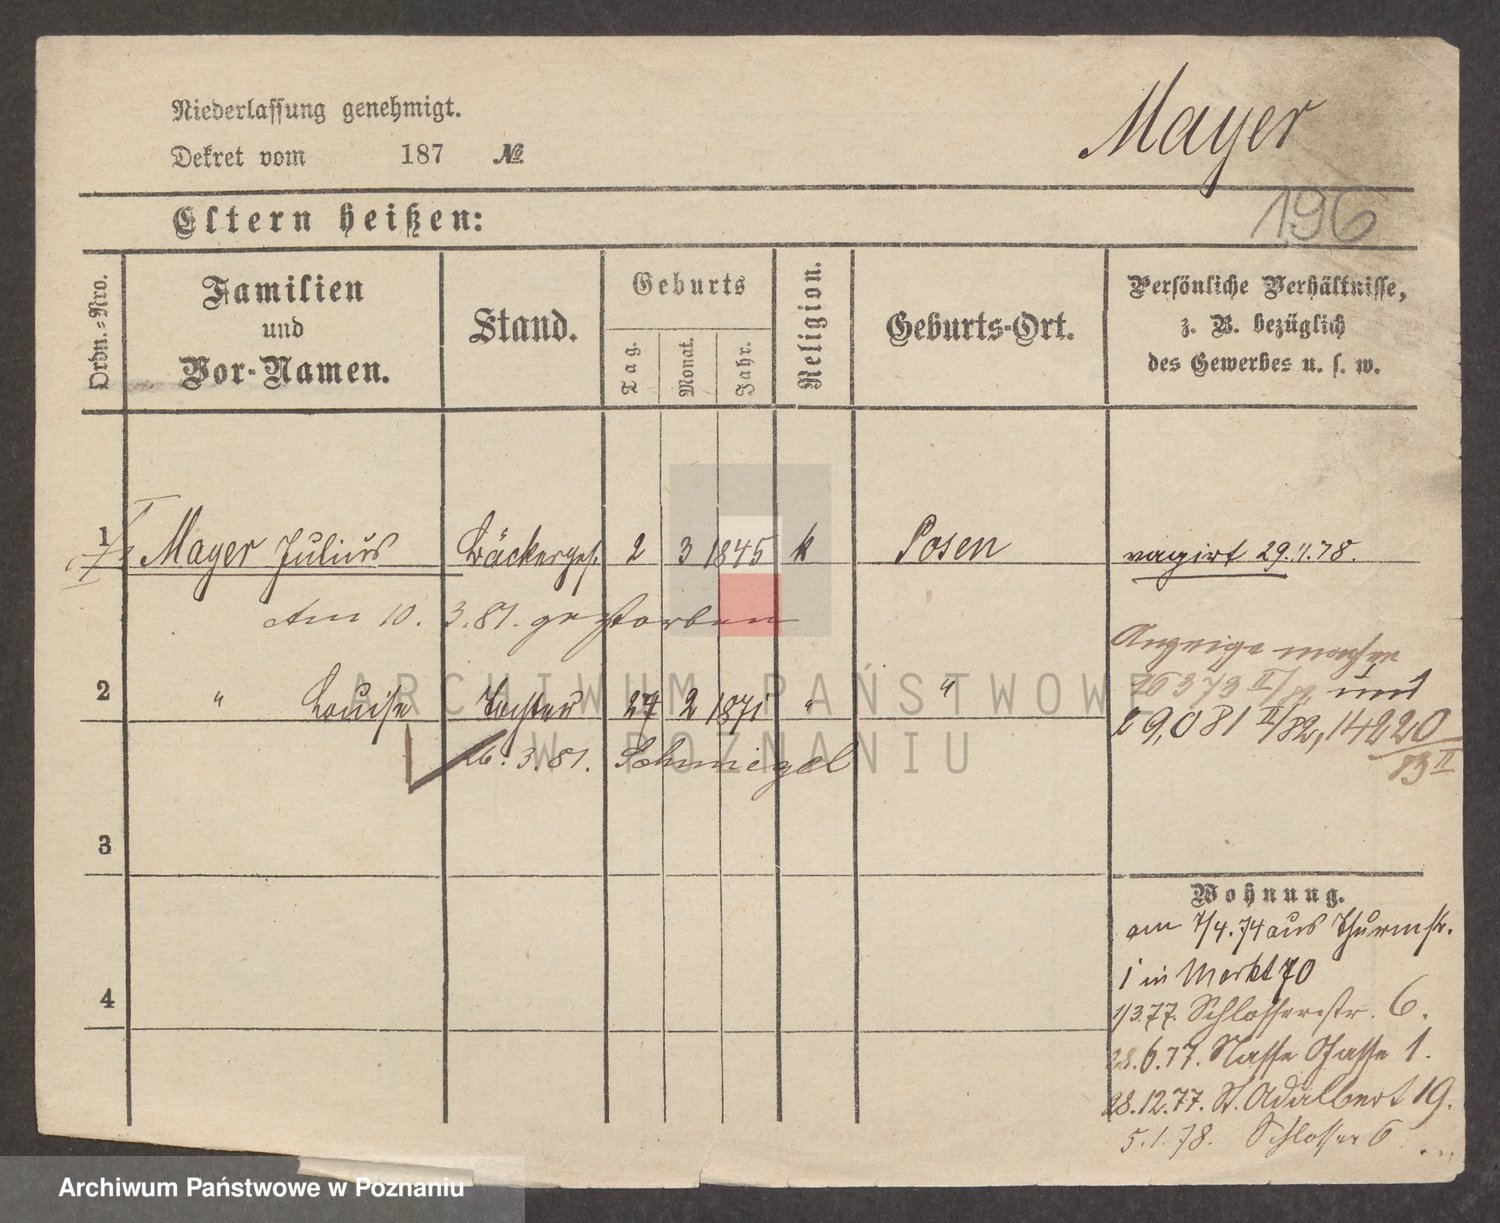 Niederlassung genehmigt.
Dekret vom 187 №
Mayer
196
Eltern heißen:
Ordn.=Nro.
Familien
und
Vor-Namen.
Stand.
Geburts
Tag.
Monat.
Jahr.
Religion.
Geburts-Ort.
Persönliche Verhältnisse,
z. B. bezüglich
des Gewerbes u. s. w.
1 Mayer Julius Bäckerges. 2 3 1845 k Posen vagirt 29.1.78.
Am 10. 3.81. gestorben
Anzeige
2 " Louise Tochter 27 2 1871 " " und
29,081 II/82, 14220
13 II
26. 3.81. Schmiegel
3
Wohnung.
am 7/4.74 aus Thurmstr.
1 in Markt 70
4
1/3.77. Schlosserstr. 6.
28.6.77. Nasse Gasse 1.
28.12.77. St. Adalbert 19.
5.1.78. Schlosser 6
ARCHIWUM PAŃSTWOWE
W POZNANIU
Archiwum Państwowe w Poznaniu